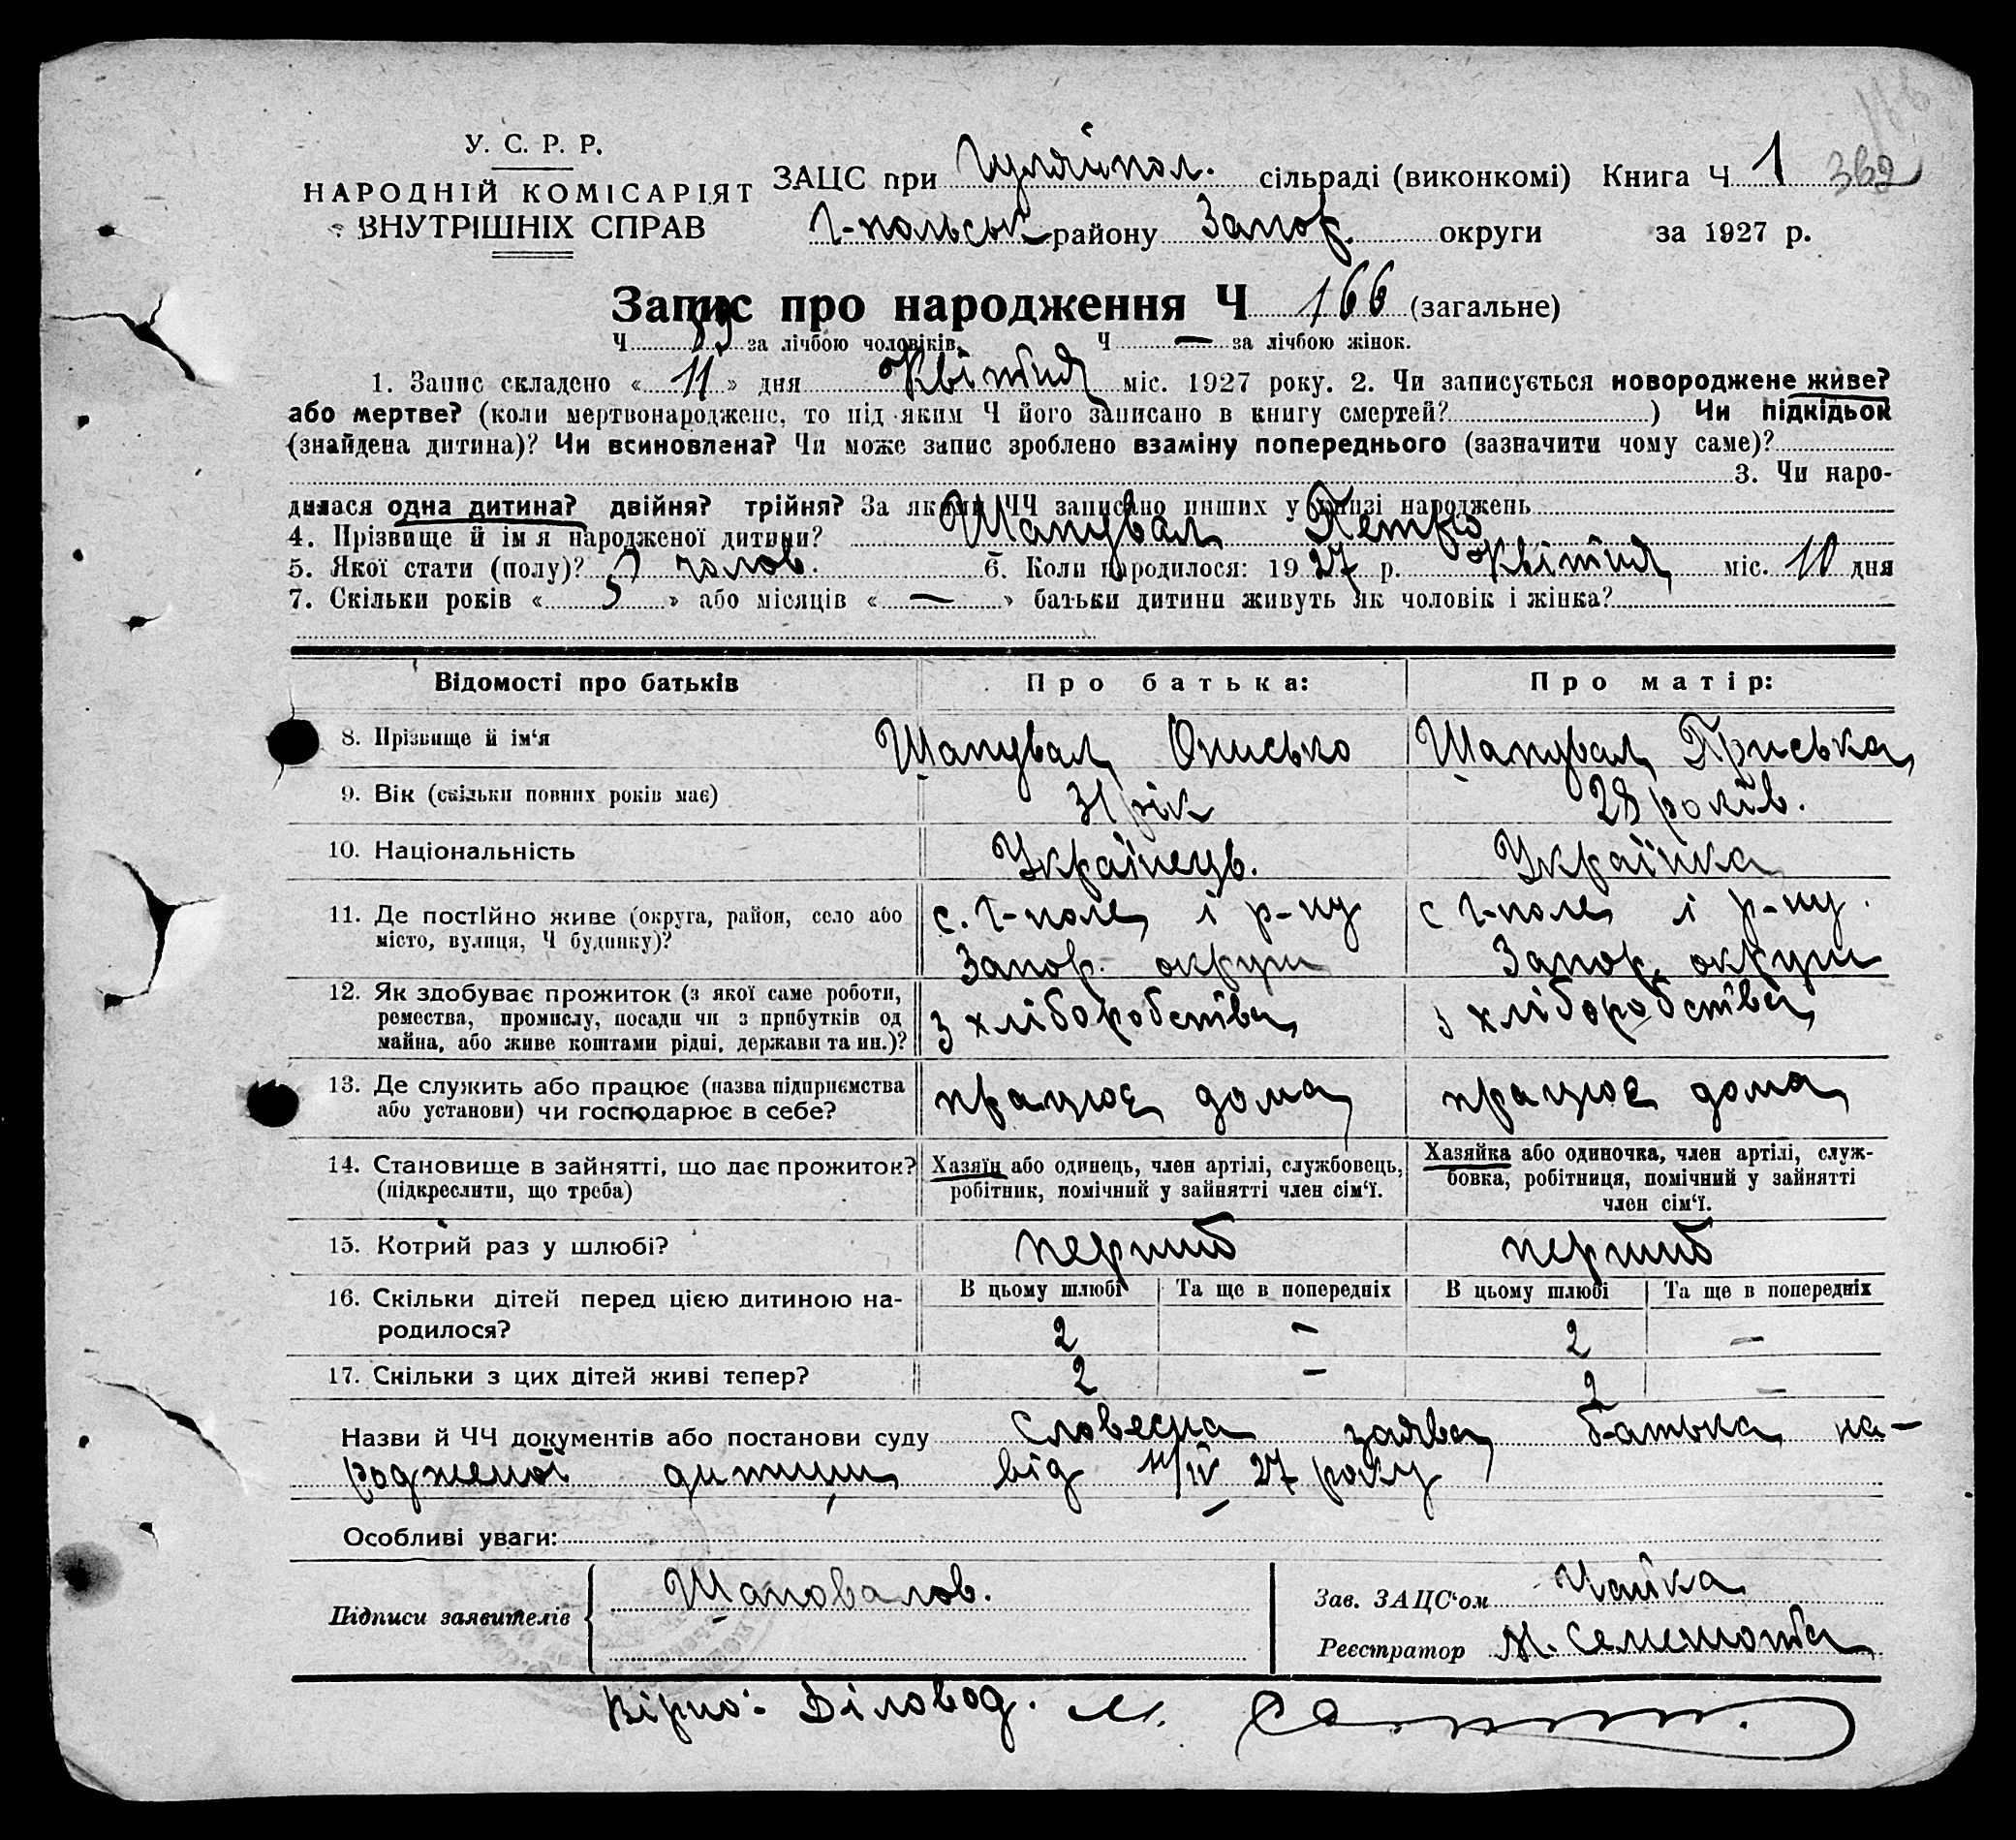 У. С. Р. Р.
НАРОДНІЙ КОМІСАРІЯТ
ВНУТРІШНІХ СПРАВ
ЗАЦС при Гуляйпол. сільраді (виконкомі) Книга Ч 1
Г-польськ району Запор. округи за 1927 р.
Запис про народження Ч 166 (загальне)
Ч 89 за лічбою чоловіків. Ч — за лічбою жінок.
1. Запис складено « 11 » дня Квітня міс. 1927 року. 2. Чи записується новороджене живе?
або мертве? (коли мертвонароджене, то під яким Ч його записано в книгу смертей? ) Чи підкідьок
(знайдена дитина)? Чи всиновлена? Чи може запис зроблено взаміну попереднього (зазначити чому саме)?
3. Чи наро-
дилася одна дитина? двійня? трійня? За якими ЧЧ записано инших у книзі народжень
4. Прізвище й ім я народженої дитини? Шапувал Петро
5. Якої стати (полу)? чолов. 6. Коли народилося: 1927 р. Квітня міс. 10 дня
7. Скільки років « 5 » або місяців « — » батьки дитини живуть як чоловік і жінка?
Відомості про батьків Про батька: Про матір:
8. Прізвище й ім‘я Шапувал Онисько Шапувал Приська
9. Вік (скільки повних років має) 31 рік 28 років.
10. Національність Українець. Українка
11. Де постійно живе (округа, район, село або с. Г-поле і р-ну с Г-поле і р-ну.
місто, вулиця, Ч будинку)? Запор. округи Запор. округи
12. Як здобуває прожиток (з якої саме роботи, з хліборобства з хліборобства
ремества, промислу, посади чи з прибутків од
майна, або живе коштами рідні, держави та ин.)?
13. Де служить або працює (назва підприємства працює дома працює дома
або установи) чи господарює в себе?
14. Становище в зайнятті, що дає прожиток? Хазяїн або одинець, член артілі, службовець, Хазяйка або одиночка, член артілі, служ-
(підкреслити, що треба) робітник, помічний у зайнятті член сім‘ї. бовка, робітниця, помічний у зайнятті
член сім‘ї.
15. Котрий раз у шлюбі? перший перший
16. Скільки дітей перед цією дитиною на- В цьому шлюбі Та ще в попередніх В цьому шлюбі Та ще в попередніх
родилося? 2 — 2 —
17. Скільки з цих дітей живі тепер? 2 — 2 —
Назви й ЧЧ документів або постанови суду словесна заява батька на-
родженої дитини від 11/IV 27 року
Особливі уваги: —
Підписи заявителів Шаповалов. Зав. ЗАЦС‘ом Чайка
Реєстратор М.
Вірно: Діловод. М.